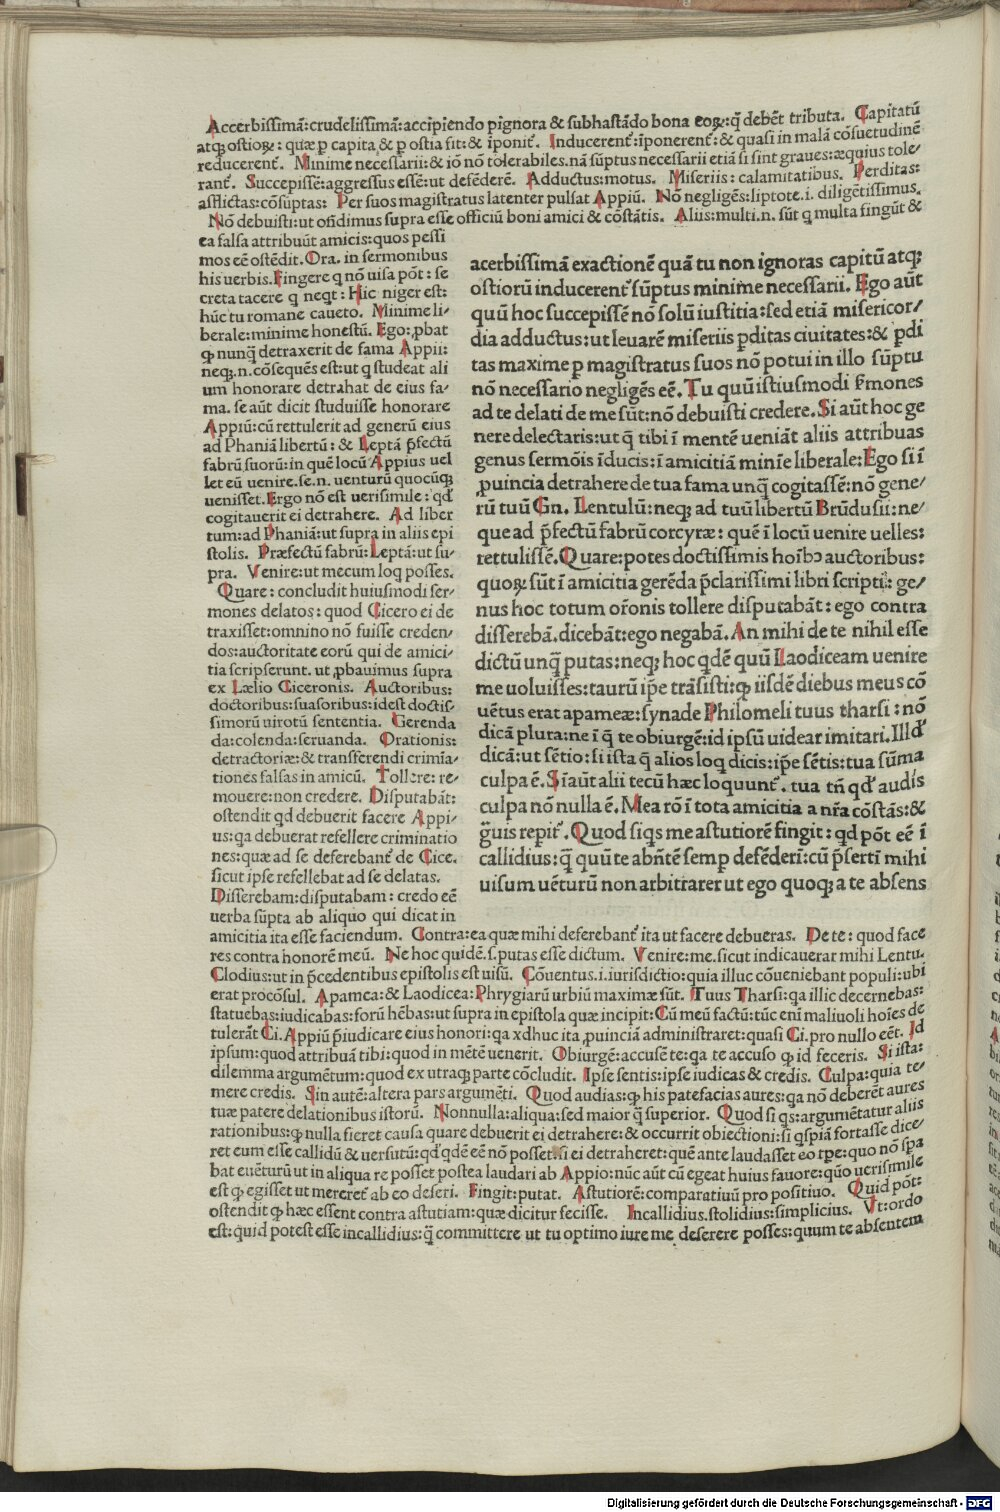 Accerbissimā:crudelissimā:accipiendo pignora & subhastādo bona eoꝝ:q̄ debēt tributa. Capitatū
atqꝫ ostioꝝ: quæ ꝑ capita & ꝑ ostia fit:& iponit᷑. Inducerent᷑:iponerent᷑:& quasi in malā cōsuetudinē
reducerent᷑. Minime necessarii:& iō nō tolerabiles.nā sūptus necessarii etiā si sint graues:æquius tole/
rant᷑. Succepissē:aggressus essē:ut defēderē. Adductus:motus. Miseriis: calamitatibus. Perditas:
afflictas:cōsūptas: Per suos magistratus latenter pulsat Appiū. Nō negligēs:liptote.i. diligētissimus.
Nō debuisti:ut ofidimus supra esse officiū boni amici & cōstātis. Aliis:multi.n. sūt q multa fingūt &
ea falsa attribuūt amicis:quos pessi
mos eē ostēdit. Ora. in sermonibus
his uerbis. Fingere q nō uisa pōt : se
creta tacere q neqt : Hic niger est:
hūc tu romane caueto. Minime li-
berale:minime honestū. Ego:ꝓbat
ꝙ nunq̄ detraxerit de fama Appii:
neqꝫ.n.cōsequēs est:ut q studeat ali
um honorare detrahat de eius fa-
ma. se aūt dicit studuisse honorare
Appiū:cū rettulerit ad generū eius
ad Phaniā libertū: & Leptā p̄fectū
fabrū suorū:in quē locū Appius uel
let eū uenire.se.n. uenturū quocūqꝫ
uenisset.Ergo nō est uerisimile : qd᷑
cogitauerit ei detrahere. Ad liber
tum:ad Phaniā:ut supra in aliis epi
stolis. Præfectū fabrū:Leptā:ut su/
pra. Venire:ut mecum loq posses.
Quare: concludit huiusmodi ser-
mones delatos: quod Cicero ei de
traxisset:omnino nō fuisse creden/
dos:auctoritate eorū qui de amici/
tia scripserunt. ut ꝓbauimus supra
ex Lælio Ciceronis. Auctoribus:
doctoribus:suasoribus:idest doctis/
simorū uirorū sententia. Gerenda
da:colenda:seruanda. Orationis:
detractoriæ:& transferendi crimīa/
tiones falsas in amicū. Tollere: re/
mouere:non credere. Disputabāt:
ostendit qd debuerit facere Appi/
us:qa debuerat refellere criminatio
nes:quæ ad se deferebant᷑ de Cice.
sicut ipse refellebat ad se delatas.
Disserebam:disputabam: credo eē
uerba sūpta ab aliquo qui dicat in
acerbissimā exactionē quā tu non ignoras capitū atqꝫ
ostiorū inducerent᷑ sūptus minime necessarii. Ego aūt
quū hoc succepissē nō solū iustitia:sed etiā misericor/
dia adductus:ut leuarē miseriis ꝑditas ciuitates:& ꝑdi
tas maxime ꝑ magistratus suos nō potui in illo sūptu
nō necessario negligēs eē. Tu quū istiusmodi ẜmones
ad te delati de me sūt:nō debuisti credere. Si aūt hoc ge
nere delectaris:ut q̄ tibi ī mentē ueniāt aliis attribuas
genus sermōis īducis:ī amicitiā minīe liberale:Ego si ī
ꝓuincia detrahere de tua fama unq̄ cogitassē:nō gene/
rū tuū Gn. Lentulū:neqꝫ ad tuū libertū Brūdusii:ne/
que ad p̄fectū fabrū corcyræ: quē ī locū uenire uelles:
rettulissē.Quare:potes doctissimis hoībꝰ auctoribus:
quoꝝ sūt ī amicitia gerēda p̄clarissimi libri scripti: ge/
nus hoc totum orōnis tollere disputabāt: ego contra
disserebā.dicebāt:ego negabā. An mihi de te nihil esse
dictū unq̄ putas:neqꝫ hoc qdē quū Laodiceam uenire
me uoluisses:taurū ip̄e trāsisti:ꝙ iisdē diebus meus cō
uētus erat apameæ:synade Philomeli tuus tharsi : nō
dicā plura:ne ī q̄ te obiurgē:id ipsū uidear imitari. Illd᷑
dicā:ut sētio:si ista q̄ alios loq dicis:ip̄e sētis:tua sūma
culpa ē. Sīaūt alii tecū hæc loquunt᷑. tua tn̄ qd᷑ audis
culpa nō nulla ē. Mea rō ī tota amicitia a nr̄a cōstās:&
g̃uis repit᷑. Quod siqs me astutiorē fingit: qd pōt eē ī
callidius:q̄ quū te abn̄tē semꝑ defēderī:cū p̄sertī mihi
uisum uēturū non arbitrarer ut ego quoqꝫ a te absens
amicitia ita esse faciendum. Contra:ea quæ mihi deferebant᷑ ita ut facere debueras. De te: quod face
res contra honorē meū. Ne hoc quidē.s.putas esse dictum. Venire:me.sicut indicauerar mihi Lentu.
Clodius:ut in p̄cedentibus epistolis est uisū. Cōuentus.i.iurisdictio:quia illuc cōueniebant populi:ubi
erat procōsul. Apamea:& Laodicea:Phrygiarū urbiū maximæ sūt. Tuus Tharsi:qa illic decernebas:
statuebas:iudicabas:forū hēbas:ut supra in epistola quæ incipit: Cū meū factū:tūc enī maliuoli hoīes de
tulerāt Ci.Appiū p̄iudicare eius honori:qa xdhuc ita ꝓuinciā administraret:quasi Ci.pro nullo eēt. Id
ipsum:quod attribuā tibi:quod in mētē uenerit. Obiurgē:accusē te:qa te accuso ꝙ id feceris. Si ista:
dilemma argumētum:quod ex utraqꝫ parte cōcludit. Ipse sentis:ipse iudicas & credis. Culpa:quia te/
mere credis. Sin autē:altera pars argumēti. Quod audias:ꝙ his patefacias aures:qa nō deberēt aures
tuæ patere delationibus istorū. Nonnulla:aliqua:sed maior q̄ superior. Quod si qs:argumētatur aliis
rationibus:ꝙ nulla fieret causa quare debuerit ei detrahere:& occurrit obiectioni:si qspiā fortasse dice/
ret eum esse callidū & uersutū:qd᷑qdē eē nō posset:si ei detraheret:quē ante laudasset eo tꝑe:quo nō spa
bat euēturū ut in aliqua re posset postea laudari ab Appio:nūc aūt cū egeat huius fauore:quō uerisimile
est ꝙ egisset ut mereret᷑ ab eo deseri. Fingit:putat. Astutiorē:comparatiuū pro positiuo. Quid pōt:
ostendit ꝙ hæc essent contra astutiam:quæ dicitur fecisse. Incallidius.stolidius:simplicius. Vt:ordo
est:quid potest esse incallidius:q̄ committere ut tu optimo iure me deserere posses:quum te absentem
Digitalisierung gefördert durch die Deutsche Forschungsgemeinschaft - DFG